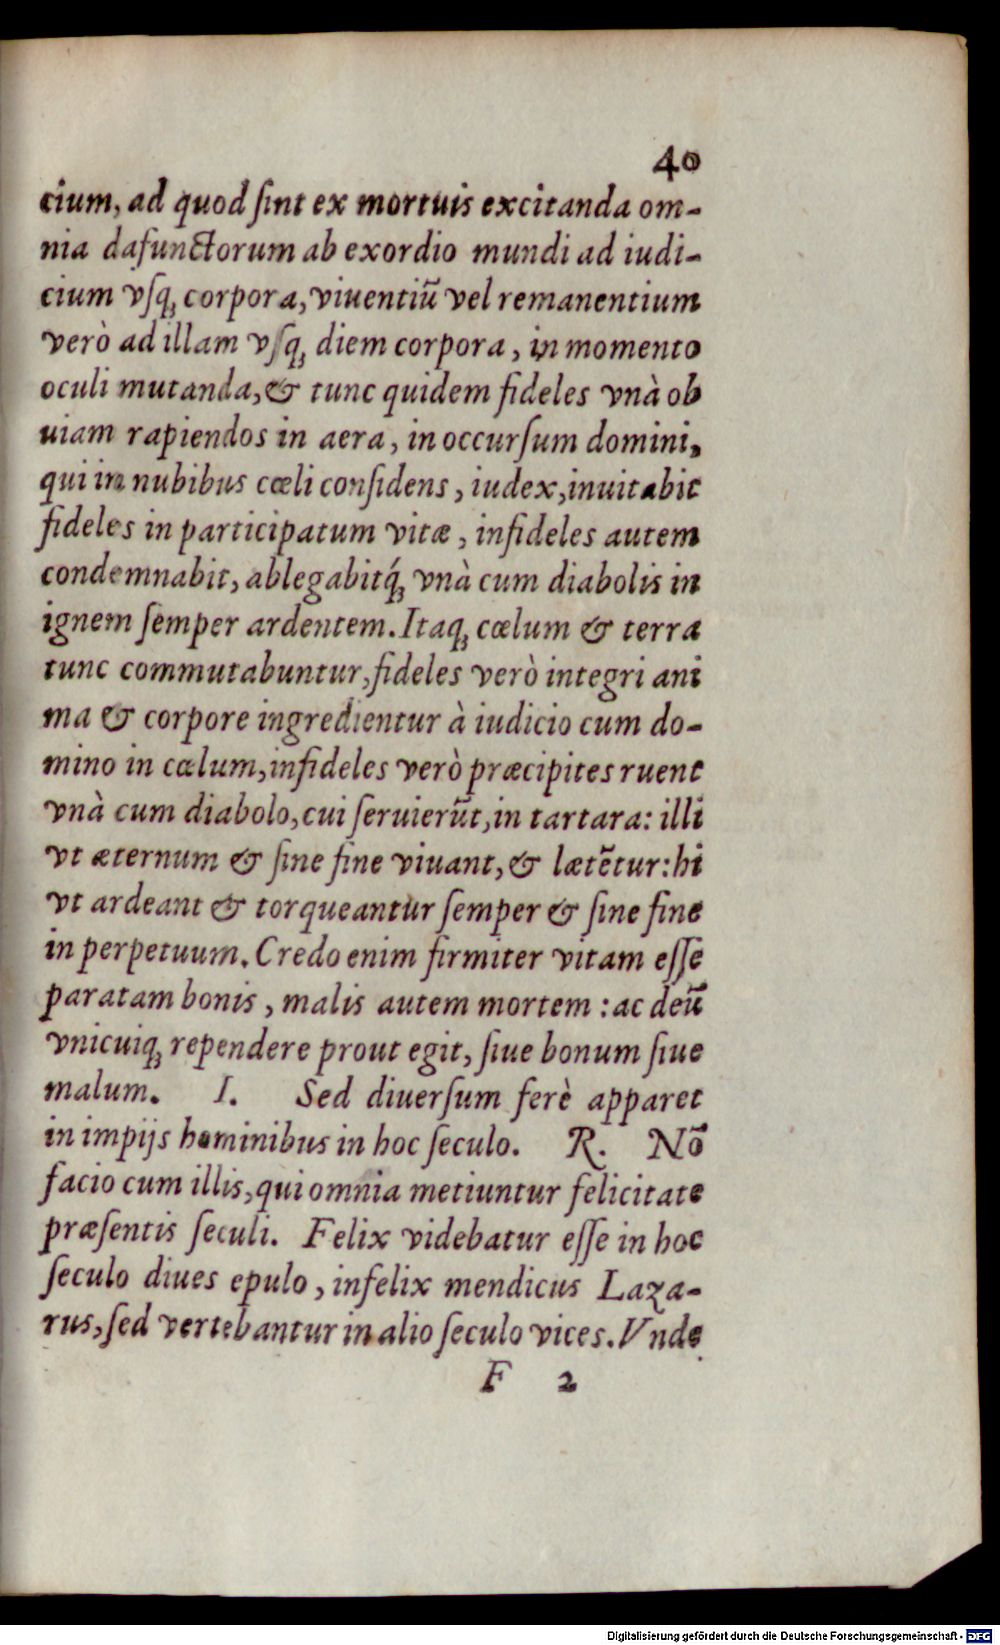 40
cium, ad quod ſint ex mortuis excitanda om-
nia dafunctorum ab exordio mundi ad iudi-
cium vſq; corpora, viuentiũ vel remanentium
verò ad illam vſq; diem corpora, in momento
oculi mutanda, & tunc quidem fideles vnà ob
uiam rapiendos in aera, in occurſum domini,
qui in nubibus cœli conſidens, iudex, inuitabit
fideles in participatum vitæ, infideles autem
condemnabit, ablegabitq́; vnà cum diabolis in
ignem ſemper ardentem. Itaq; cœlum & terra
tunc commutabuntur, fideles verò integri ani
ma & corpore ingredientur à iudicio cum do-
mino in cœlum, infideles verò præcipites ruent
vnà cum diabolo, cui ſeruierũt, in tartara: illi
vt æternum & ſine fine viuant, & lætẽtur: hi
vt ardeant & torqueantur ſemper & ſine fine
in perpetuum. Credo enim firmiter vitam eſſe
paratam bonis, malis autem mortem: ac deũ
vnicuiq; rependere prout egit, ſiue bonum ſiue
malum. I. Sed diuerſum ferè apparet
in impijs hominibus in hoc ſeculo. R. Nõ
facio cum illis, qui omnia metiuntur felicitate
præſentis ſeculi. Felix videbatur eſſe in hoc
ſeculo diues epulo, infelix mendicus Laza-
rus, ſed vertebantur in alio ſeculo vices. Vnde
F 2
Digitalisierung gefördert durch die Deutsche Forschungsgemeinschaft - DFG